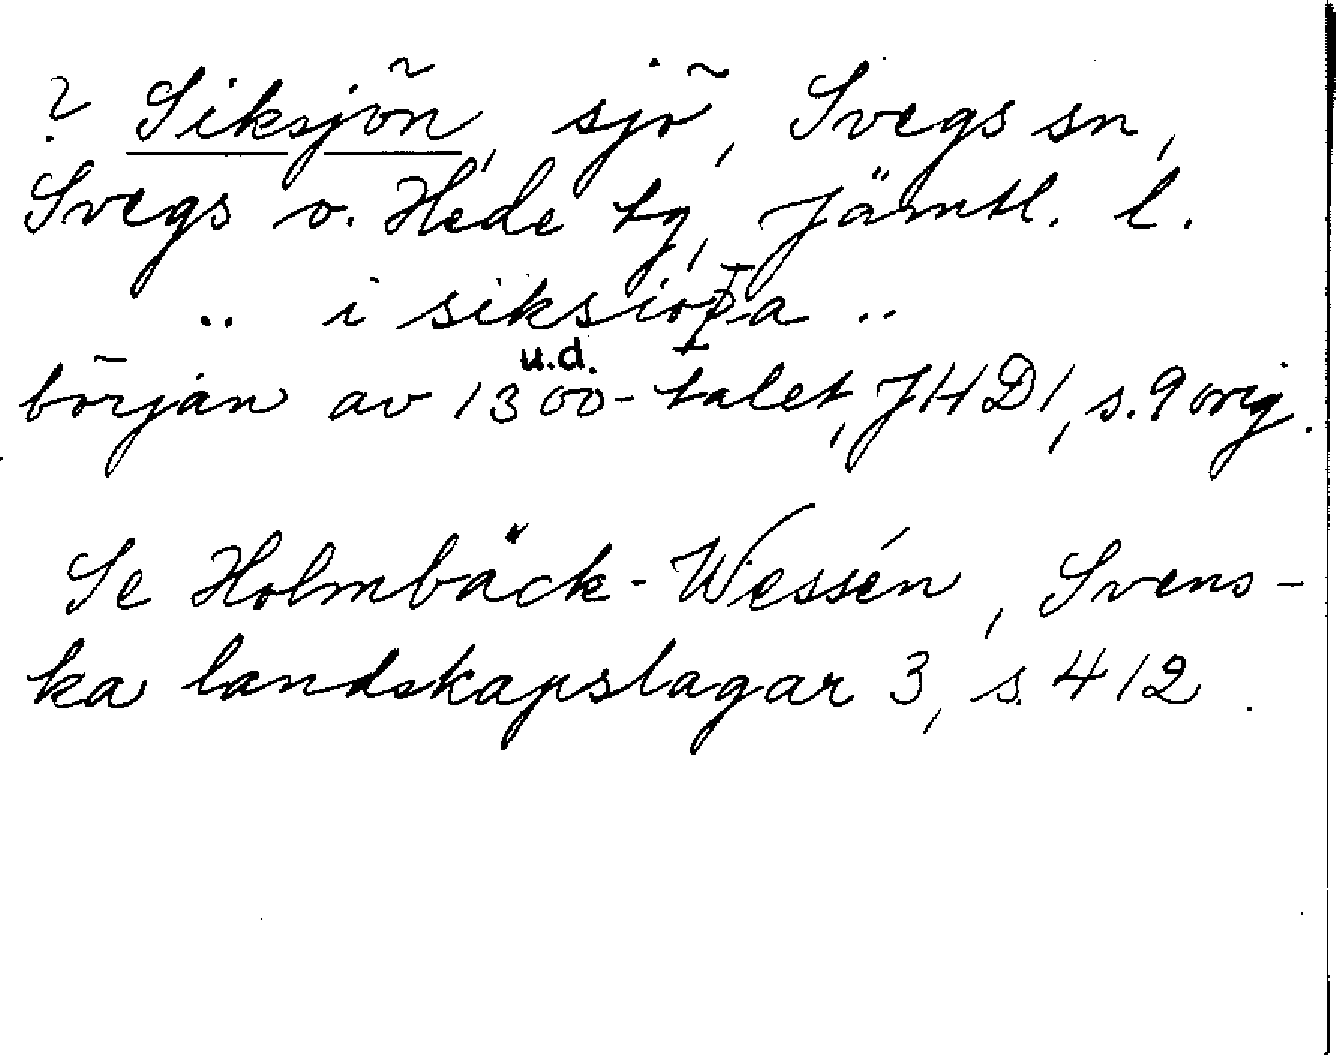 ? Siksjön, sjö, Svegs sn,
Svegs o. Hede tg, Jämtl. l.
.. i siksio a ..
u.d.
början av 1300-talet, JHD1, s. 9 orig.
Se Holmbäck-Wessén, Svens-
ka landskapslagar 3, s. 412.